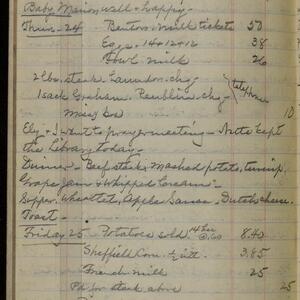 Baby Marion well + happy.
Thurs - 24 Benton, milk tickets 50
Eggs - 14+12+12 38
Howl milk 26
2 lbs. steak Lavador. chg
1 sack Graham, Renblin chg telephone
10
Eby + I went to praymeeting - kept
the Library today.
Dinner - Beefsteak, mashed potato, turnip,
Grape Jam + Whipped Cream.
Supper. Wheatlet, Apple Sauce - Dutch cheese.
Toast -
Friday 25 - Potatoes sold. 14 bu @ .60 8.40
Sheffield Com. 3.85
French milk 25
Pd for steak above 25